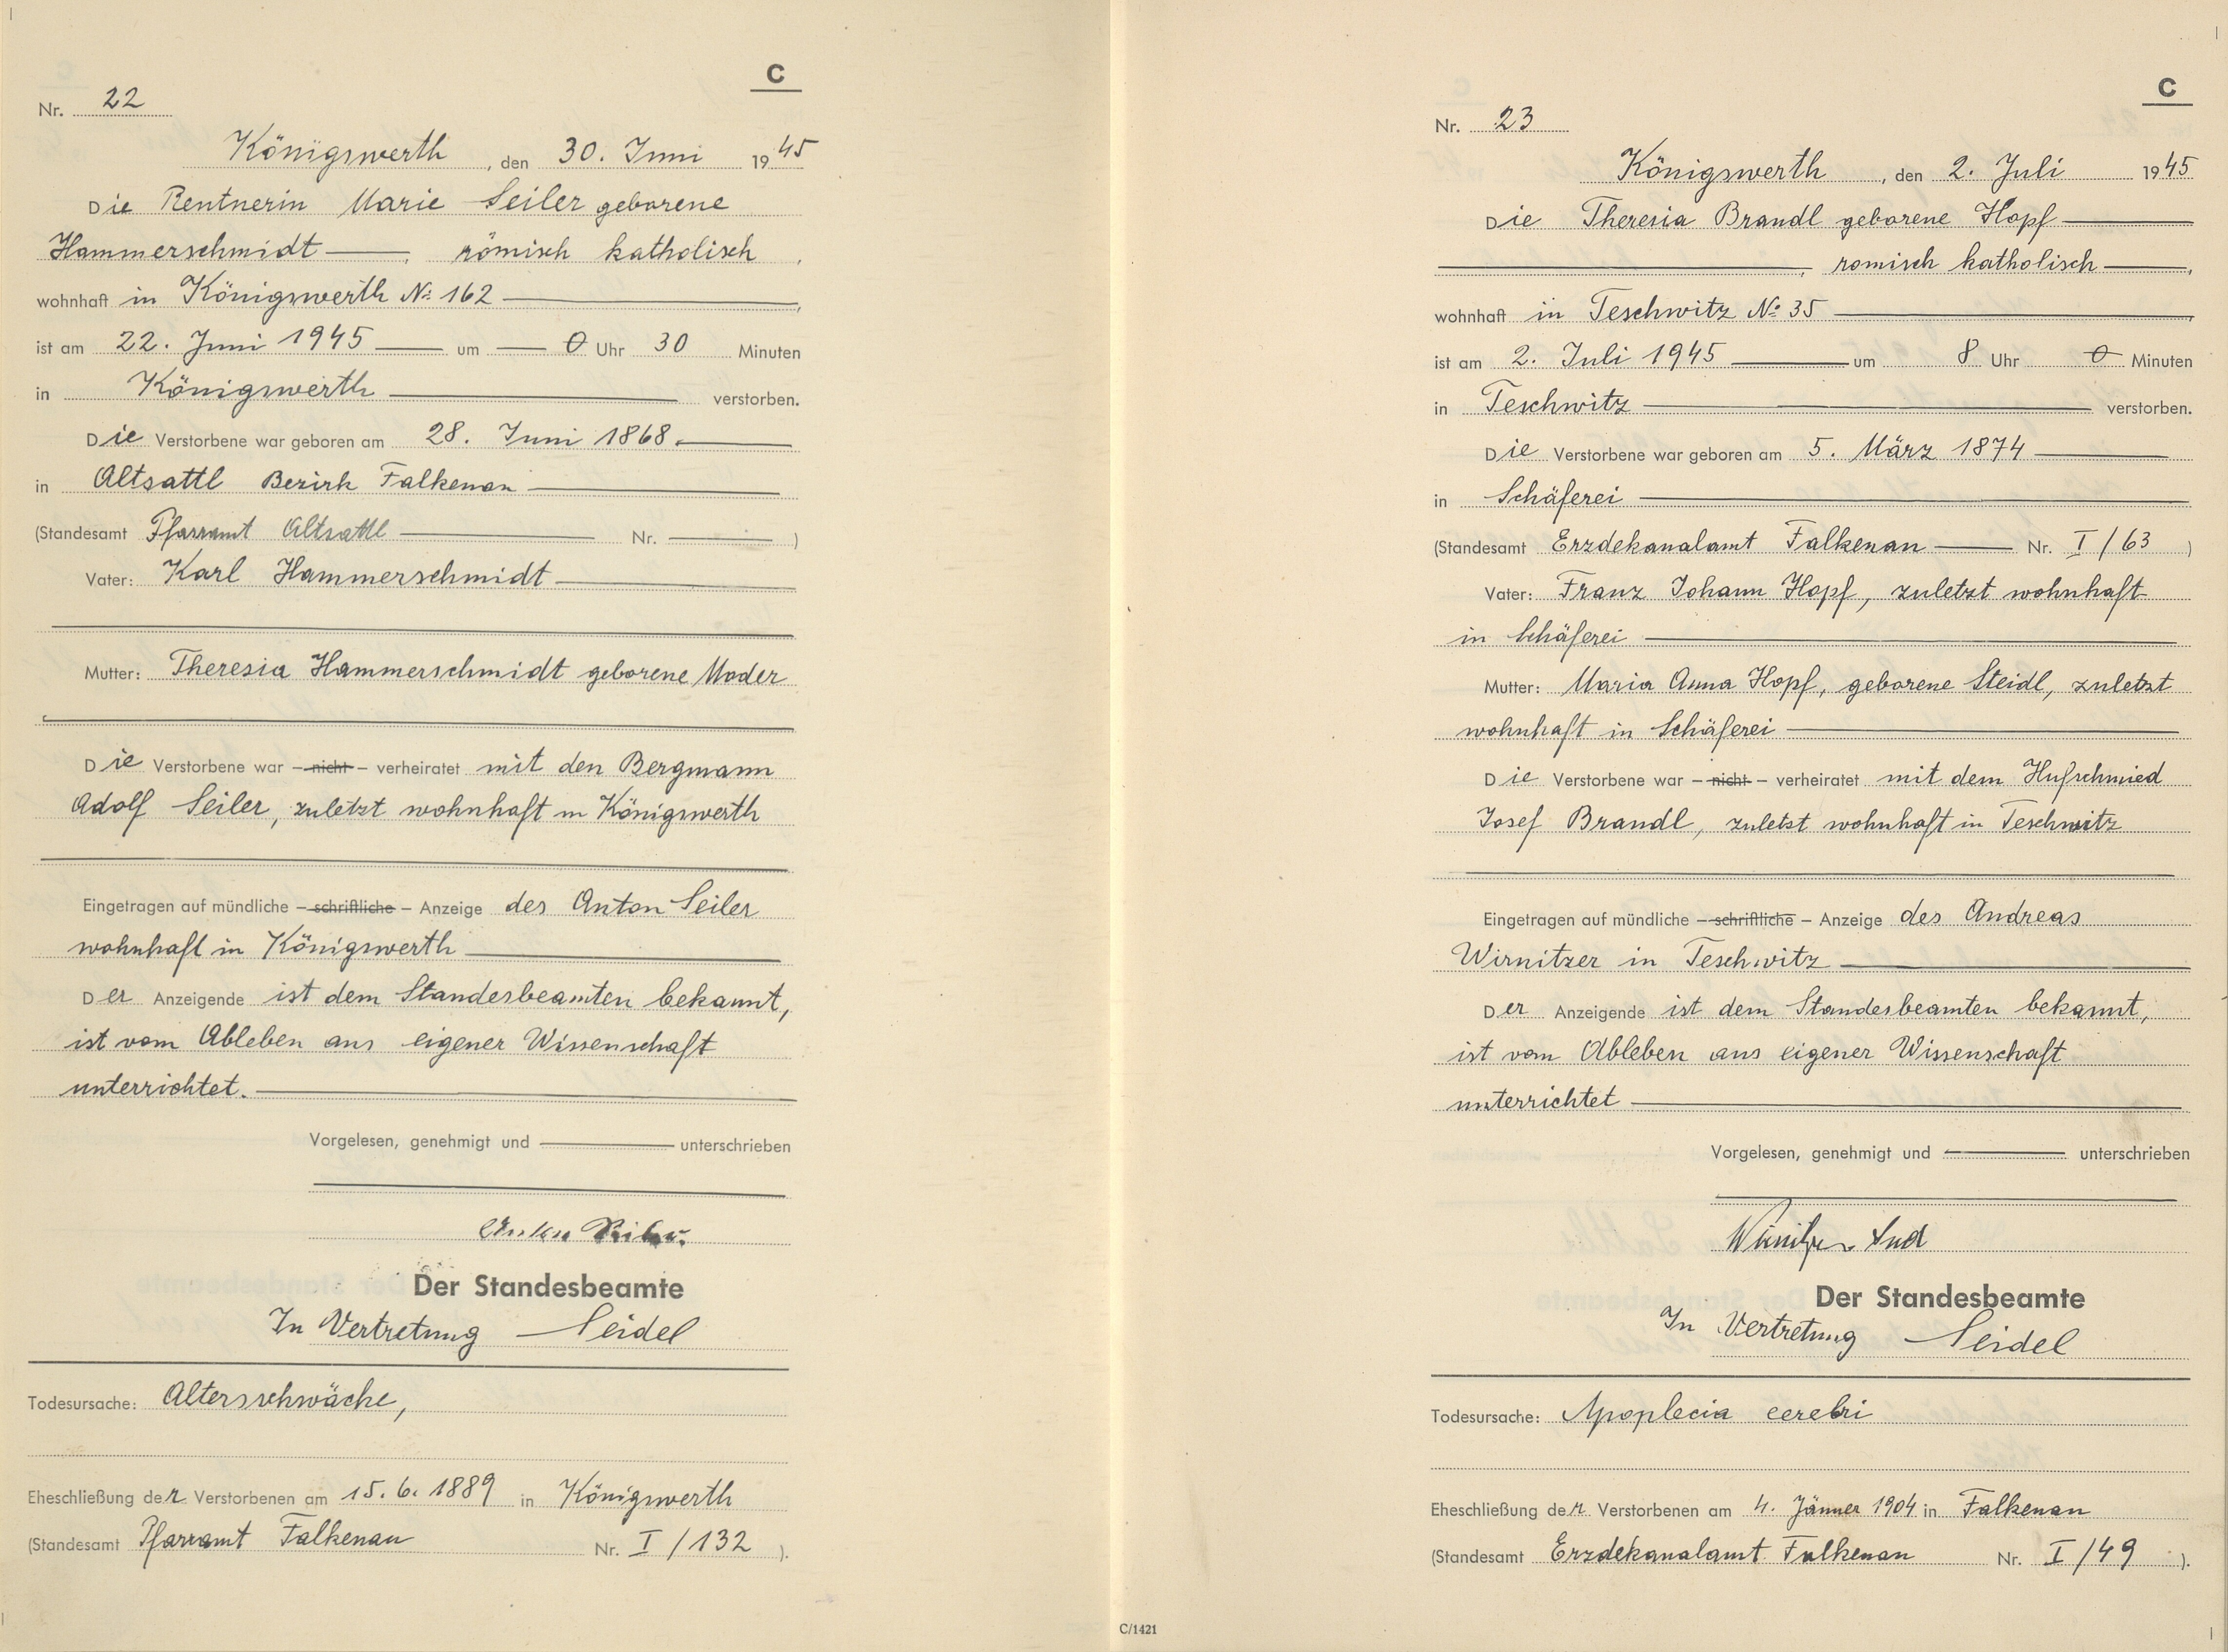 C
Nr. 22
Königswerth, den 30. Juni 1945
Die Rentnerin Marie Seiler geborene
Hammerschmidt —, römisch katholisch,
wohnhaft in Königswerth № 162 —,
ist am 22. Juni 1945 — um — 0 Uhr 30 Minuten
in Königswerth — verstorben.
Die Verstorbene war geboren am 28. Juni 1868. —
in Altsattl Bezirk Falkenau —
(Standesamt Pfarramt Altsattl — Nr. — )
Vater: Karl Hammerschmidt —
Mutter: Theresia Hammerschmidt geborene Moder
Die Verstorbene war – nicht – verheiratet mit den Bergmann
Adolf Seiler, zuletzt wohnhaft in Königswerth
Eingetragen auf mündliche – schriftliche – Anzeige des Anton Seiler
wohnhaft in Königswerth —
Der Anzeigende ist dem Standesbeamten bekannt,
ist vom Ableben aus eigener Wissenschaft
unterrichtet. —
Vorgelesen, genehmigt und — unterschrieben
Der Standesbeamte
In Vertretung Seidel
Todesursache: Altersschwäche,
Eheschließung der Verstorbenen am 15.6.1889 in Königswerth
(Standesamt Pfarramt Falkenau Nr. I/132 ).
C
Nr. 23
Königswerth, den 2. Juli 1945
Die Theresia Brandl geborene Hopf —
—, romisch katholisch —,
wohnhaft in Teschwitz № 35 —,
ist am 2. Juli 1945 — um 8 Uhr 0 Minuten
in Teschwitz — verstorben.
Die Verstorbene war geboren am 5. März 1874 —
in Schäferei —
(Standesamt Erzdekanalamt Falkenau — Nr. I/63 )
Vater: Franz Johann Hopf, zuletzt wohnhaft
in Schäferei —
Mutter: Maria Anna Hopf, geborene Steidl, zuletzt
wohnhaft in Schäferei —
Die Verstorbene war – nicht – verheiratet mit dem Hufschmied
Josef Brandl, zuletzt wohnhaft in Teschwitz
Eingetragen auf mündliche – schriftliche – Anzeige des Andreas
Wirnitzer in Teschwitz —
Der Anzeigende ist dem Standesbeamten bekannt,
ist vom Ableben aus eigener Wissenschaft
unterrichtet —
Vorgelesen, genehmigt und — unterschrieben
Wirnitzer And
Der Standesbeamte
In Vertretung Seidel
Todesursache: Apoplecia cerebri
Eheschließung der Verstorbenen am 4. Jänner 1904 in Falkenau
(Standesamt Erzdekanalamt Falkenau Nr. I/49 ).
C/1421